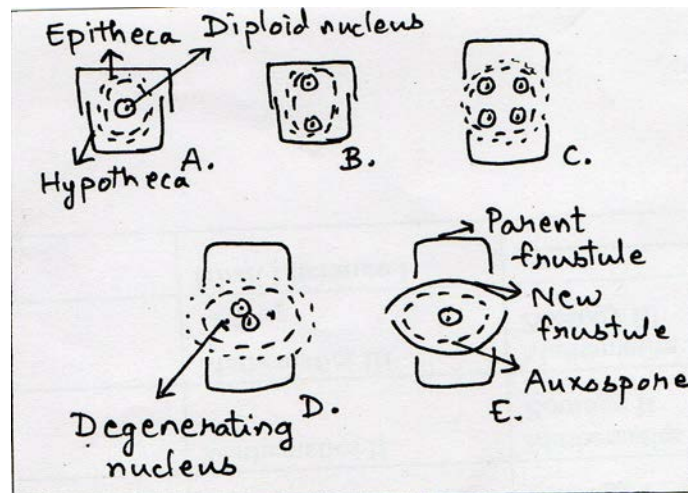 Epitheca Diploid nucleus
Hypotheca A.
B.
C.
Parent
frustule
New
frustule
Auxospore
D.
E.
Degenerating
nucleus